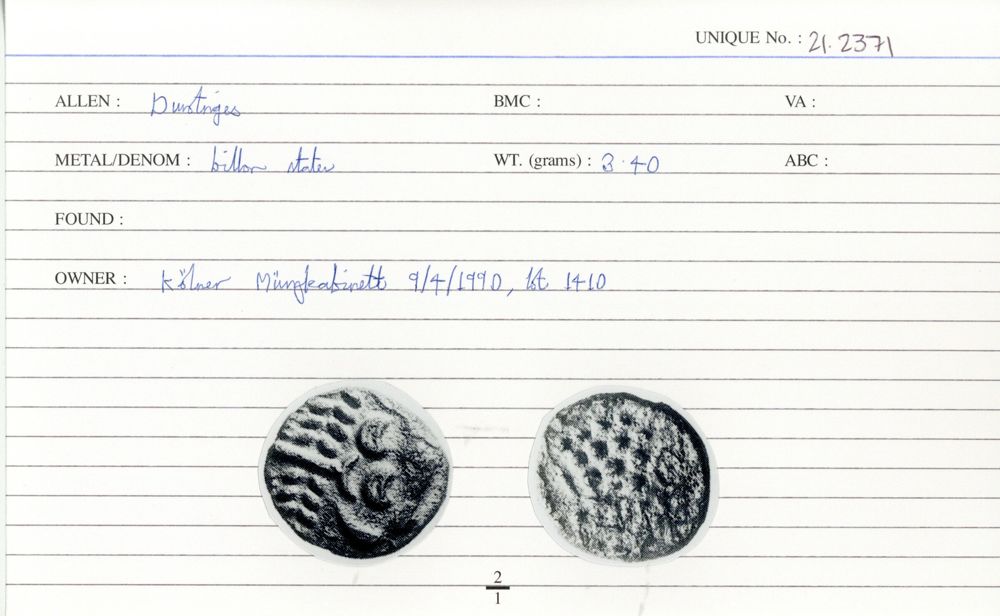 UNIQUE No. : 21.2371
ALLEN : Durotriges BMC : VA :
METAL/DENOM : billon stater WT. (grams) : 3.40 ABC :
FOUND :
OWNER : Kölner Münzkabinett 9/4/1990, lot 1410
2
1